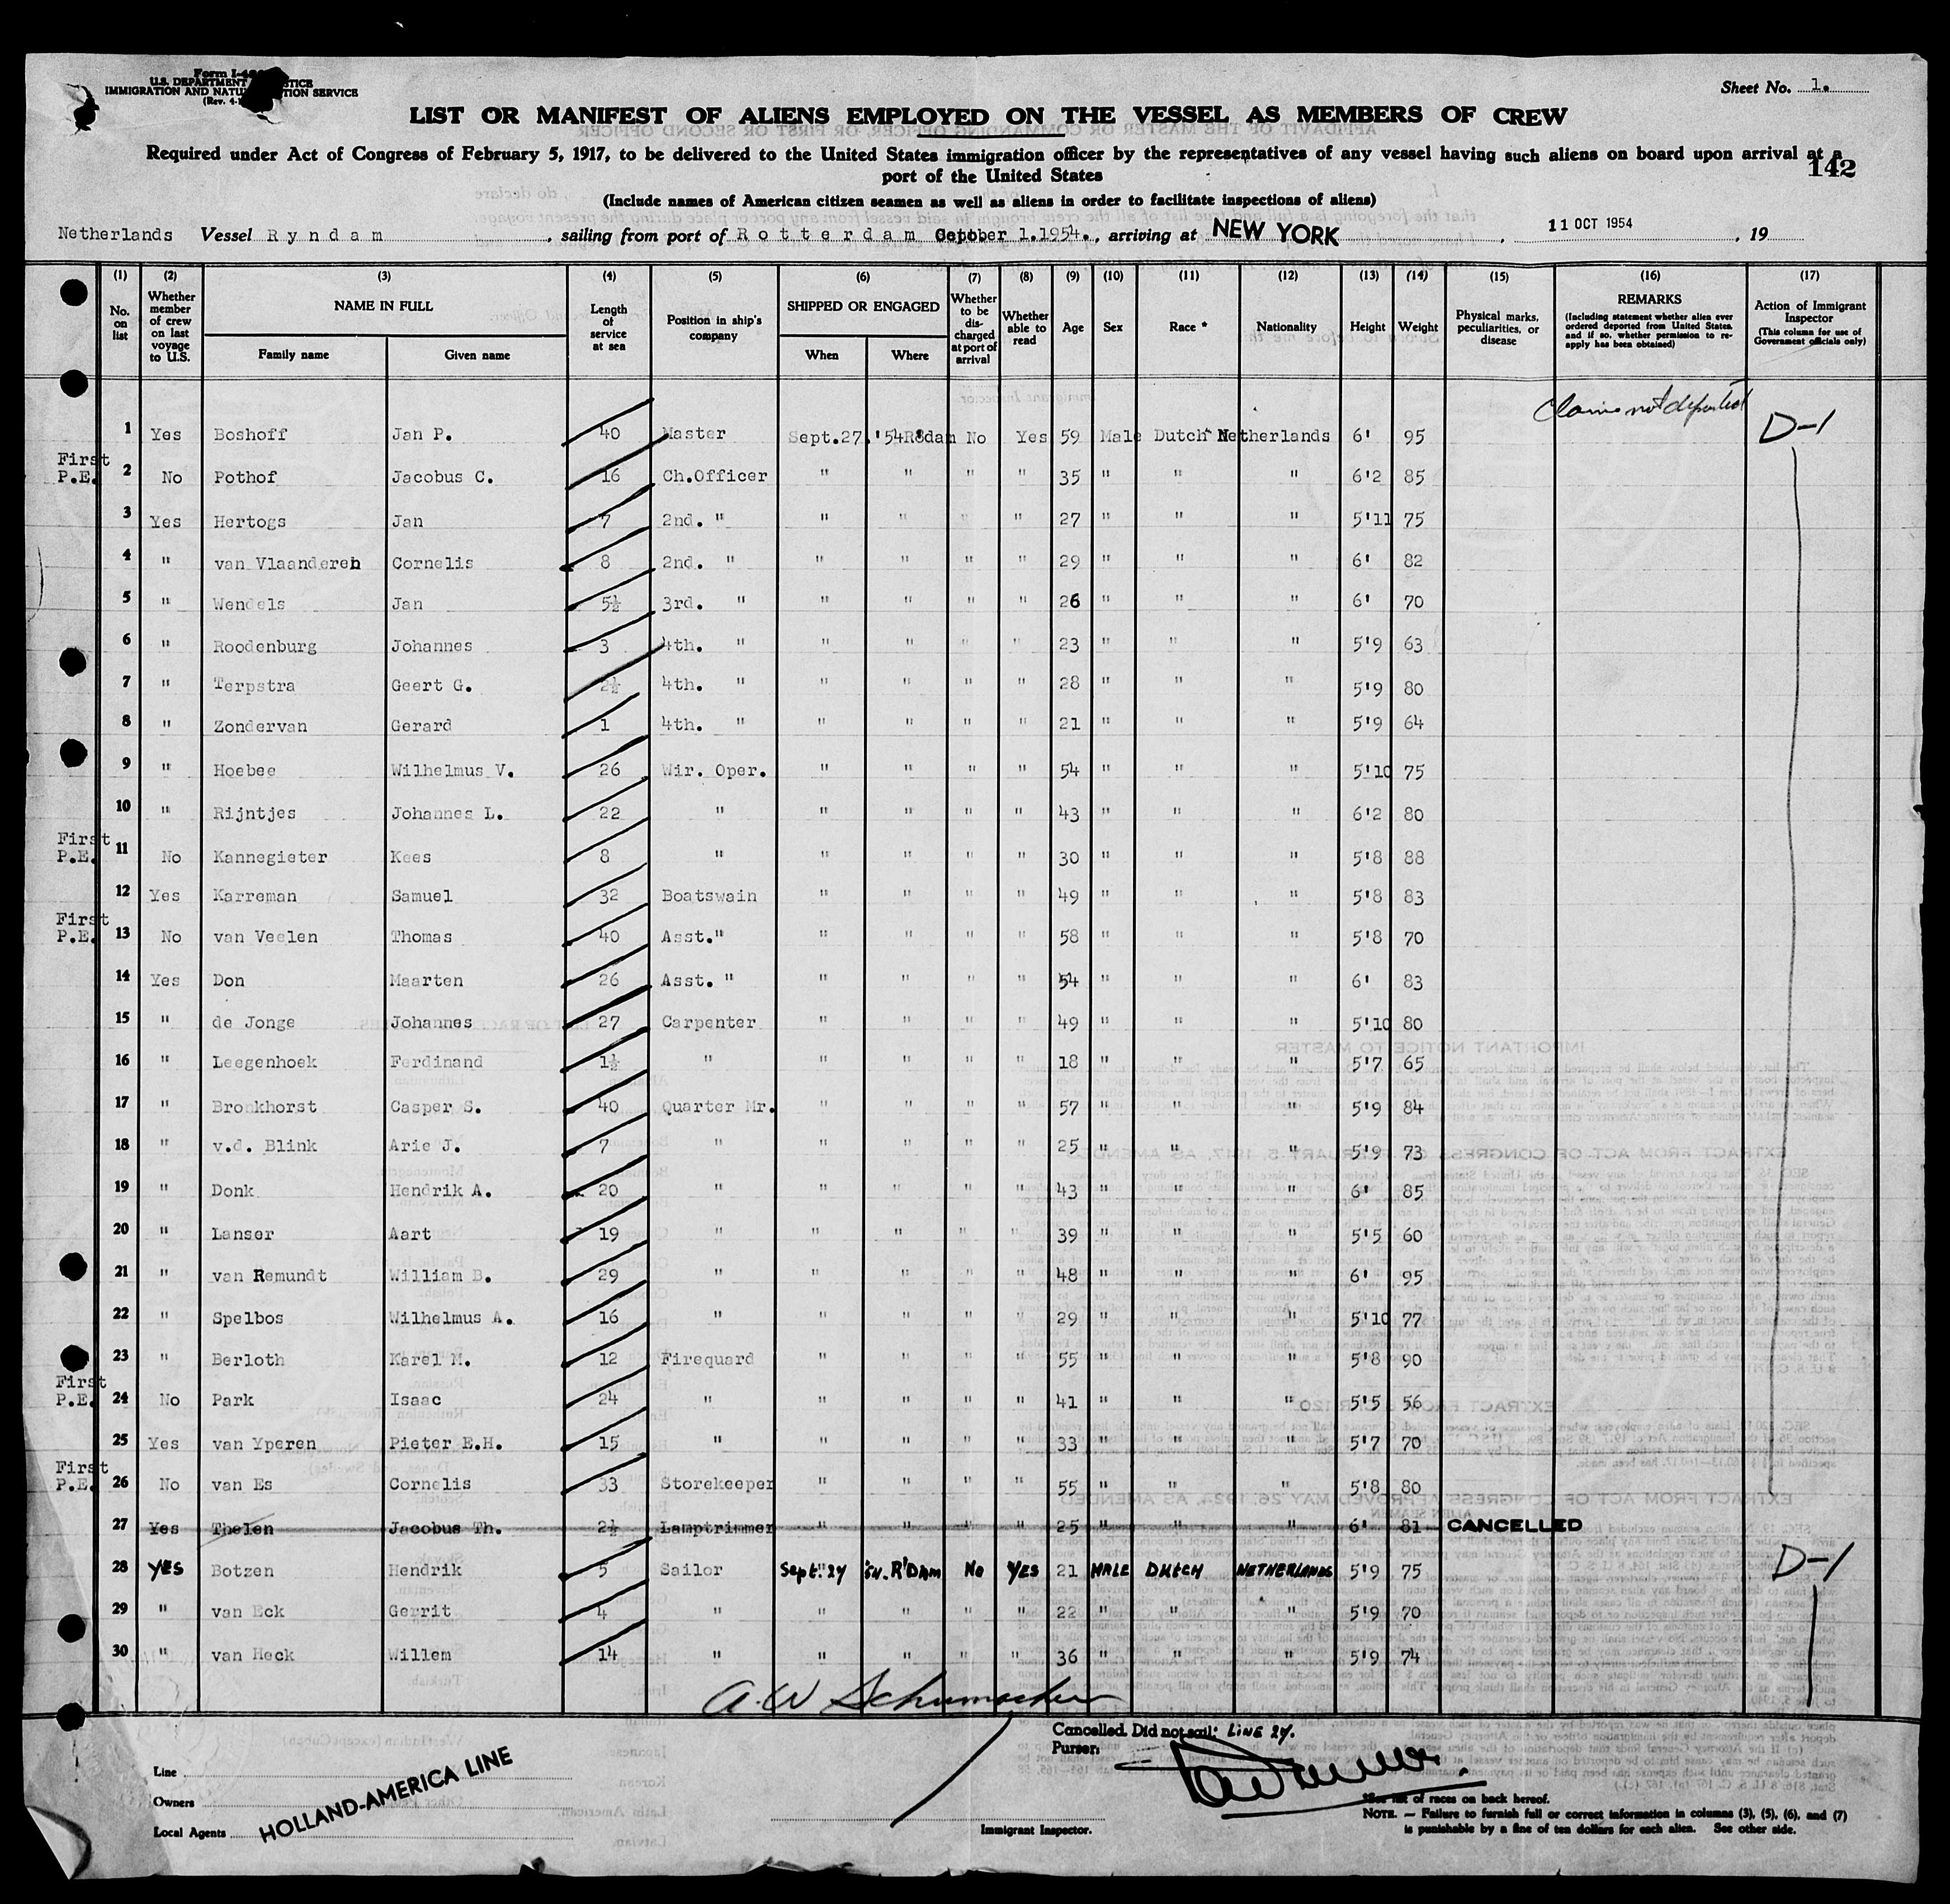 Form I-4
U.S. DEPARTMENT STICE
IMMIGRATION AND NATU TION SERVICE
(Rev. 4-
Sheet No. 1.
LIST OR MANIFEST OF ALIENS EMPLOYED ON THE VESSEL AS MEMBERS OF CREW
Required under Act of Congress of February 5, 1917, to be delivered to the United States immigration officer by the representatives of any vessel having such aliens on board upon arrival at a
port of the United States
142
(Include names of American citizen seamen as well as aliens in order to facilitate inspections of aliens)
Netherlands Vessel Ryndam, sailing from port of Rotterdam October 1.1954., arriving at NEW YORK, 11 OCT 1954, 19
(1) (2) (3) (4) (5) (6) (7) (8) (9) (10) (11) (12) (13) (14) (15) (16) (17)
No. on list Whether member of crew on last voyage to U.S. NAME IN FULL Family name Given name Length of service at sea Position in ship's company SHIPPED OR ENGAGED When Where Whether to be discharged at port of arrival Whether able to read Age Sex Race * Nationality Height Weight Physical marks, peculiarities, or disease REMARKS (Including statement whether alien ever ordered deported from United States, and if so, whether permission to re-apply has been obtained) Action of Immigrant Inspector (This column for use of Government officials only)
Claims not deported
1 Yes Boshoff Jan P. 40 Master Sept.27.'54 R'dam No Yes 59 Male Dutch Netherlands 6' 95 D-1
First P.E. 2 No Pothof Jacobus C. 16 Ch.Officer " " " " 35 " " " 6'2 85
3 Yes Hertogs Jan 7 2nd. " " " " " 27 " " " 5'11 75
4 " van Vlaanderen Cornelis 8 2nd. " " " " " 29 " " " 6' 82
5 " Wendels Jan 5½ 3rd. " " " " " 26 " " " 6' 70
6 " Roodenburg Johannes 3 4th. " " " " " 23 " " " 5'9 63
7 " Terpstra Geert G. 2½ 4th. " " " " " 28 " " " 5'9 80
8 " Zondervan Gerard 1 4th. " " " " " 21 " " " 5'9 64
9 " Hoebee Wilhelmus V. 26 Wir. Oper. " " " " 54 " " " 5'10 75
10 " Rijntjes Johannes L. 22 " " " " " 43 " " " 6'2 80
First P.E. 11 No Kannegieter Kees 8 " " " " " 30 " " " 5'8 88
12 Yes Karreman Samuel 32 Boatswain " " " " 49 " " " 5'8 83
First P.E. 13 No van Veelen Thomas 40 Asst." " " " " 58 " " " 5'8 70
14 Yes Don Maarten 26 Asst. " " " " " 54 " " " 6' 83
15 " de Jonge Johannes 27 Carpenter " " " " 49 " " " 5'10 80
16 " Leegenhoek Ferdinand 1½ " " " " " 18 " " " 5'7 65
17 " Bronkhorst Casper S. 40 Quarter Mr. " " " " 57 " " " 5'9 84
18 " v.d. Blink Arie J. 7 " " " " " 25 " " " 5'9 73
19 " Donk Hendrik A. 20 " " " " " 43 " " " 6' 85
20 " Lanser Aart 19 " " " " " 39 " " " 5'5 60
21 " van Remundt William B. 29 " " " " " 48 " " " 6' 95
22 " Spelbos Wilhelmus A. 16 " " " " " 29 " " " 5'10 77
23 " Berloth Karel M. 12 Firequard " " " " 55 " " " 5'8 90
First P.E. 24 No Park Isaac 24 " " " " " 41 " " " 5'5 56
25 Yes van Yperen Pieter E.H. 15 " " " " " 33 " " " 5'7 70
First P.E. 26 No van Es Cornelis 33 Storekeeper " " " " 55 " " " 5'8 80
27 Yes Thelen Jacobus Th. 2½ Lamptrimmer " " " " 25 " " " 6' 81 CANCELLED
28 YES Botzen Hendrik 5 Sailor Sept. 27 '54. R'DAM No YES 21 MALE DUTCH NETHERLANDS 5'9 75 D-1
29 " van Eck Gerrit 4 " " " " " 22 " " " 5'9 70
30 " van Heck Willem 14 " " " " " 36 " " " 5'9 74
A.W Schumacher
Cancelled. Did not sail: LINE 27.
Purser:
Line
Owners
Local Agents
HOLLAND-AMERICA LINE
Immigrant Inspector.
*See list of races on back hereof.
NOTE. — Failure to furnish full or correct information in columns (3), (5), (6), and (7)
is punishable by a fine of ten dollars for each alien. See other side.